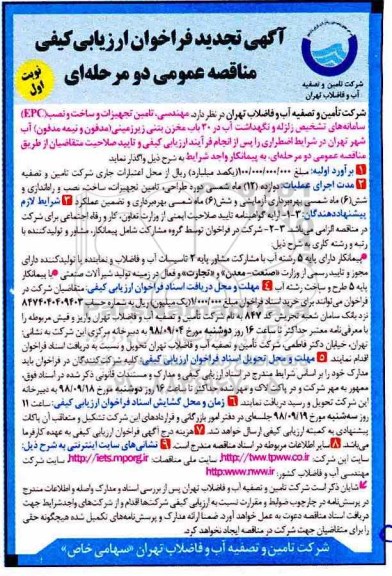 آگهی تجدید فراخوان ارزیابی کیفی
مناقصه عمومی دو مرحله‌ای
نوبت اول
شرکت تامین و تصفیه
آب و فاضلاب تهران
شرکت تأمین و تصفیه آب و فاضلاب تهران در نظر دارد، مهندسی، تامین تجهیزات و ساخت و نصب (EPC)
سامانه‌های تشخیص زلزله و نگهداشت آب در ۳۰ باب مخزن بتنی زیرزمینی(مدفون و نیمه مدفون) آب
شهر تهران در شرایط اضطراری را پس از انجام فرآیند ارزیابی کیفی و تایید صلاحیت متقاضیان از طریق
مناقصه عمومی دو مرحله‌ای، به پیمانکار واجد شرایط به شرح ذیل واگذار نماید.
۱ برآورد اولیه: مبلغ ۱۰۰/۰۰۰/۰۰۰/۰۰۰(یکصد میلیارد) ریال از محل اعتبارات جاری شرکت تامین و تصفیه
۲ مدت اجرای عملیات: دوازده (۱۲) ماه شمسی دوره طراحی، تامین تجهیزات، ساخت، نصب و راه‌اندازی و
شش(۶) ماه شمسی بهره‌برداری آزمایشی و شش(۶) ماه شمسی بهره‌برداری و تضمین عملکرد ۳ شرایط لازم
پیشنهاددهندگان: ۱-۳- ارایه گواهینامه تایید صلاحیت ایمنی از وزارت تعاون، کار و رفاه اجتماعی برای شرکت
در مناقصه الزامی می‌باشد. ۲-۳- شرکت در فراخوان توسط گروه مشارکت شامل پیمانکار، مشاور و تولیدکننده با
رتبه و رشته کاری به شرح ذیل:
پیمانکار دارای پایه ۵ رشته آب با مشارکت مشاور پایه ۲ تاسیسات آب و فاضلاب و نماینده یا تولیدکننده دارای
مجوز و تایید رسمی از وزارت «صنعت، معدن» و «تجارت» و فعال در زمینه تولید شیرآلات صنعتی یا پیمانکار
پایه ۵ طرح و ساخت رشته آب ۴ مهلت و محل دریافت اسناد فراخوان ارزیابی کیفی: متقاضیان شرکت در
فراخوان می‌توانند برای خرید اسناد فراخوان مبلغ ۱/۰۰۰/۰۰۰(یک میلیون) ریال به شماره حساب
نزد بانک سامان شعبه کد ۸۴۷ به نام شرکت تامین و تصفیه آب و فاضلاب تهران واریز و فیش مربوطه را
با معرفی نامه معتبر حداکثر تا ساعت ۱۶ روز دوشنبه مورخ ۹۸/۰۹/۰۴ به دبیرخانه مرکزی این شرکت به نشانی
تهران، خیابان دکتر فاطمی، شرکت تامین و تصفیه آب و فاضلاب تهران تحویل و نسبت به دریافت اسناد فراخوان
اقدام نمایند. ۵ مهلت و محل تحویل اسناد فراخوان ارزیابی کیفی: کلیه شرکت‌کنندگان در فراخوان باید
مدارک خود را بر اساس شرایط مندرج در اسناد ارزیابی کیفی و مدارک و مستندات قانونی ذکر شده در اسناد فوق،
ممهور به مهر شرکت و در پاکت لاک و مهر شده حداکثر تا ساعت ۱۶ روز دوشنبه مورخ ۹۸/۰۹/۱۸ به دبیرخانه
این شرکت تحویل و رسید دریافت نمایند. ۶ زمان و محل گشایش اسناد فراخوان ارزیابی کیفی: ساعت ۱۱
روز سه‌شنبه مورخ ۹۸/۰۹/۱۹ جلسه‌ای در دفتر امور بازرگانی و قراردادهای این شرکت تشکیل و متعاقب آن پاکات
پیشنهادی به کمیته ارزیابی کیفی ارسال خواهد شد. ۷ هزینه درج آگهی فراخوان ارزیابی کیفی به عهده کارفرما
می‌باشد. ۸ سایر اطلاعات مربوطه در اسناد مناقصه مندرج است. ۹ نشانی‌های سایت اینترنتی به شرح ذیل:
سایت این شرکت: http://tww.tpww.co.ir، سایت ملی مناقصات: http://iets.mporg.ir، سایت شرکت
مهندسی آب و فاضلاب کشور: http:www.nww.ir
شایان ذکر است شرکت تامین و تصفیه آب و فاضلاب تهران پس از بررسی اسناد و مدارک واصله و اطلاعات مندرج
در پرسش‌نامه در چارچوب ضوابط و مقررات نسبت به ارزیابی کیفی شرکت‌ها اقدام و از شرکت‌های واجد شرایط جهت
دریافت اسناد مناقصه دعوت به عمل خواهد آورد. ضمناً ارائه مدارک و پرسش‌نامه‌های تکمیل شده هیچگونه حقی
را برای متقاضیان جهت شرکت در مناقصه ایجاد نخواهد کرد.
شرکت تامین و تصفیه آب و فاضلاب تهران «سهامی خاص»